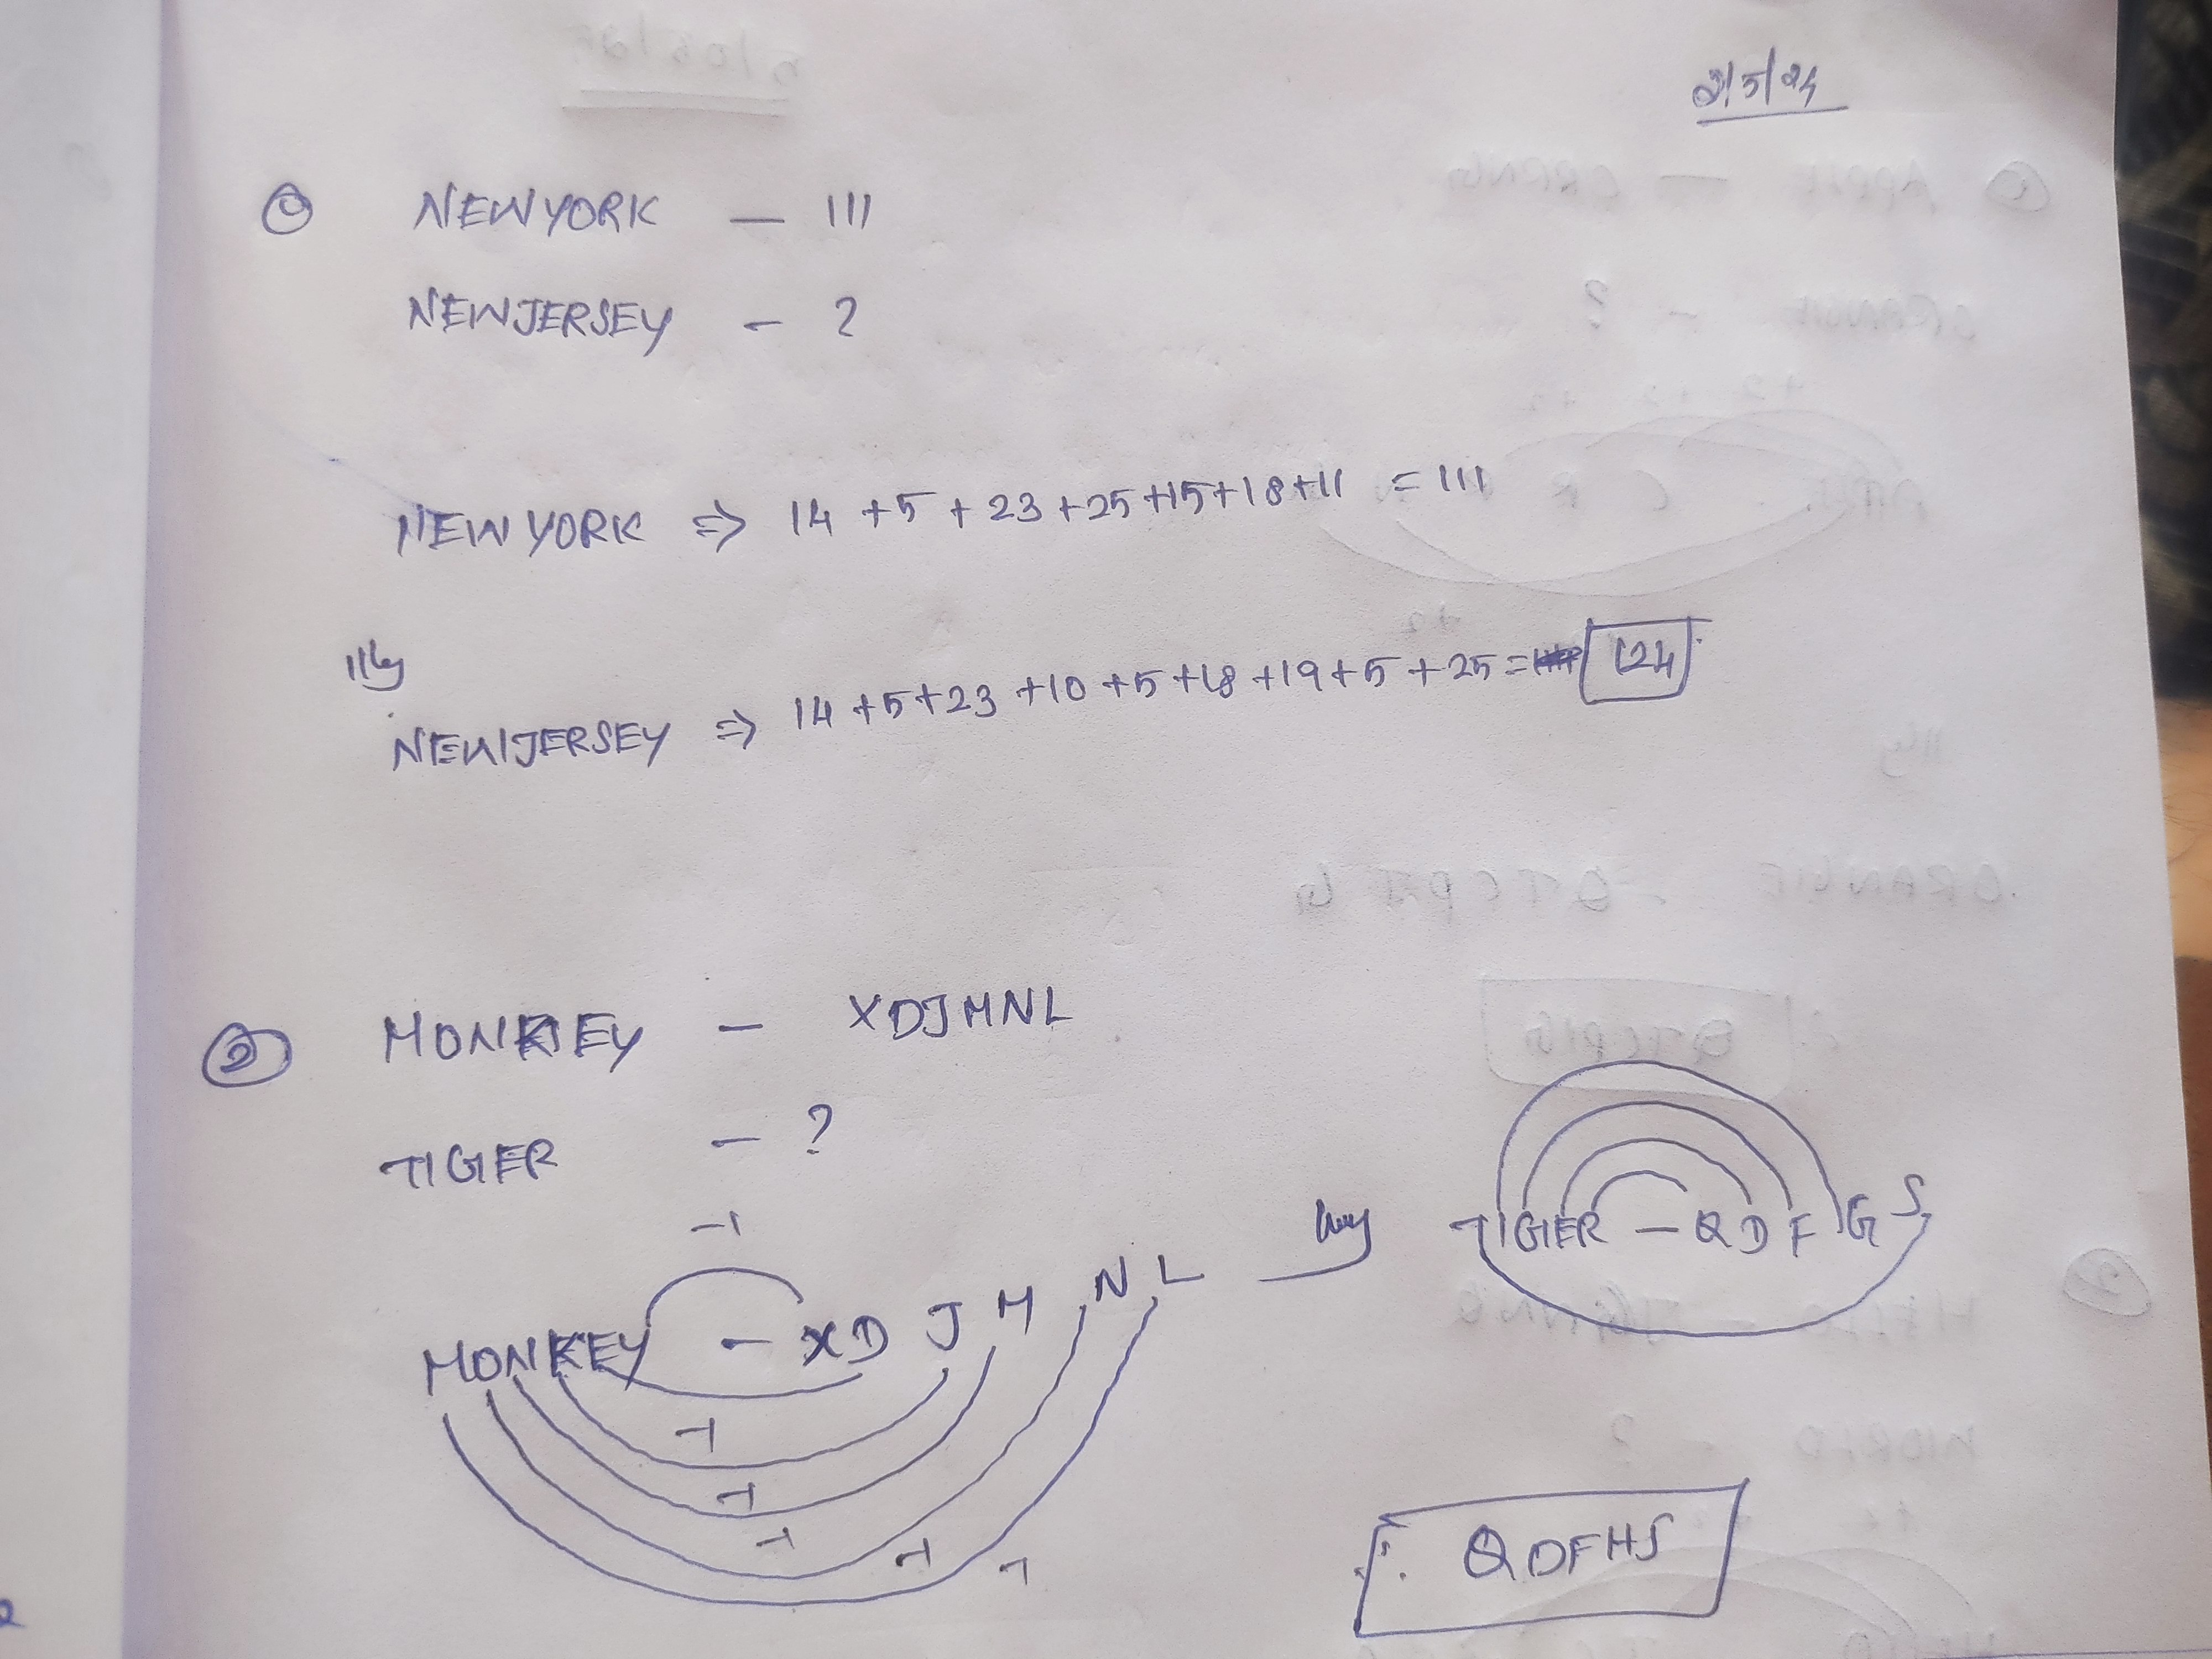 2/5/24
① NEWYORK – 111
NEWJERSEY – ?
NEWYORK ⇒ 14 + 5 + 23 + 25 + 15 + 18 + 11 = 111
111ly
NEWJERSEY ⇒ 14 + 5 + 23 + 10 + 5 + 18 + 19 + 5 + 25 = 124
② MONKEY – XDJMNL
TIGER – ?
-1
MONKEY – XDJMNL lly TIGER – QDFGS
-1
-1
-1
-1
-1
QDFHS